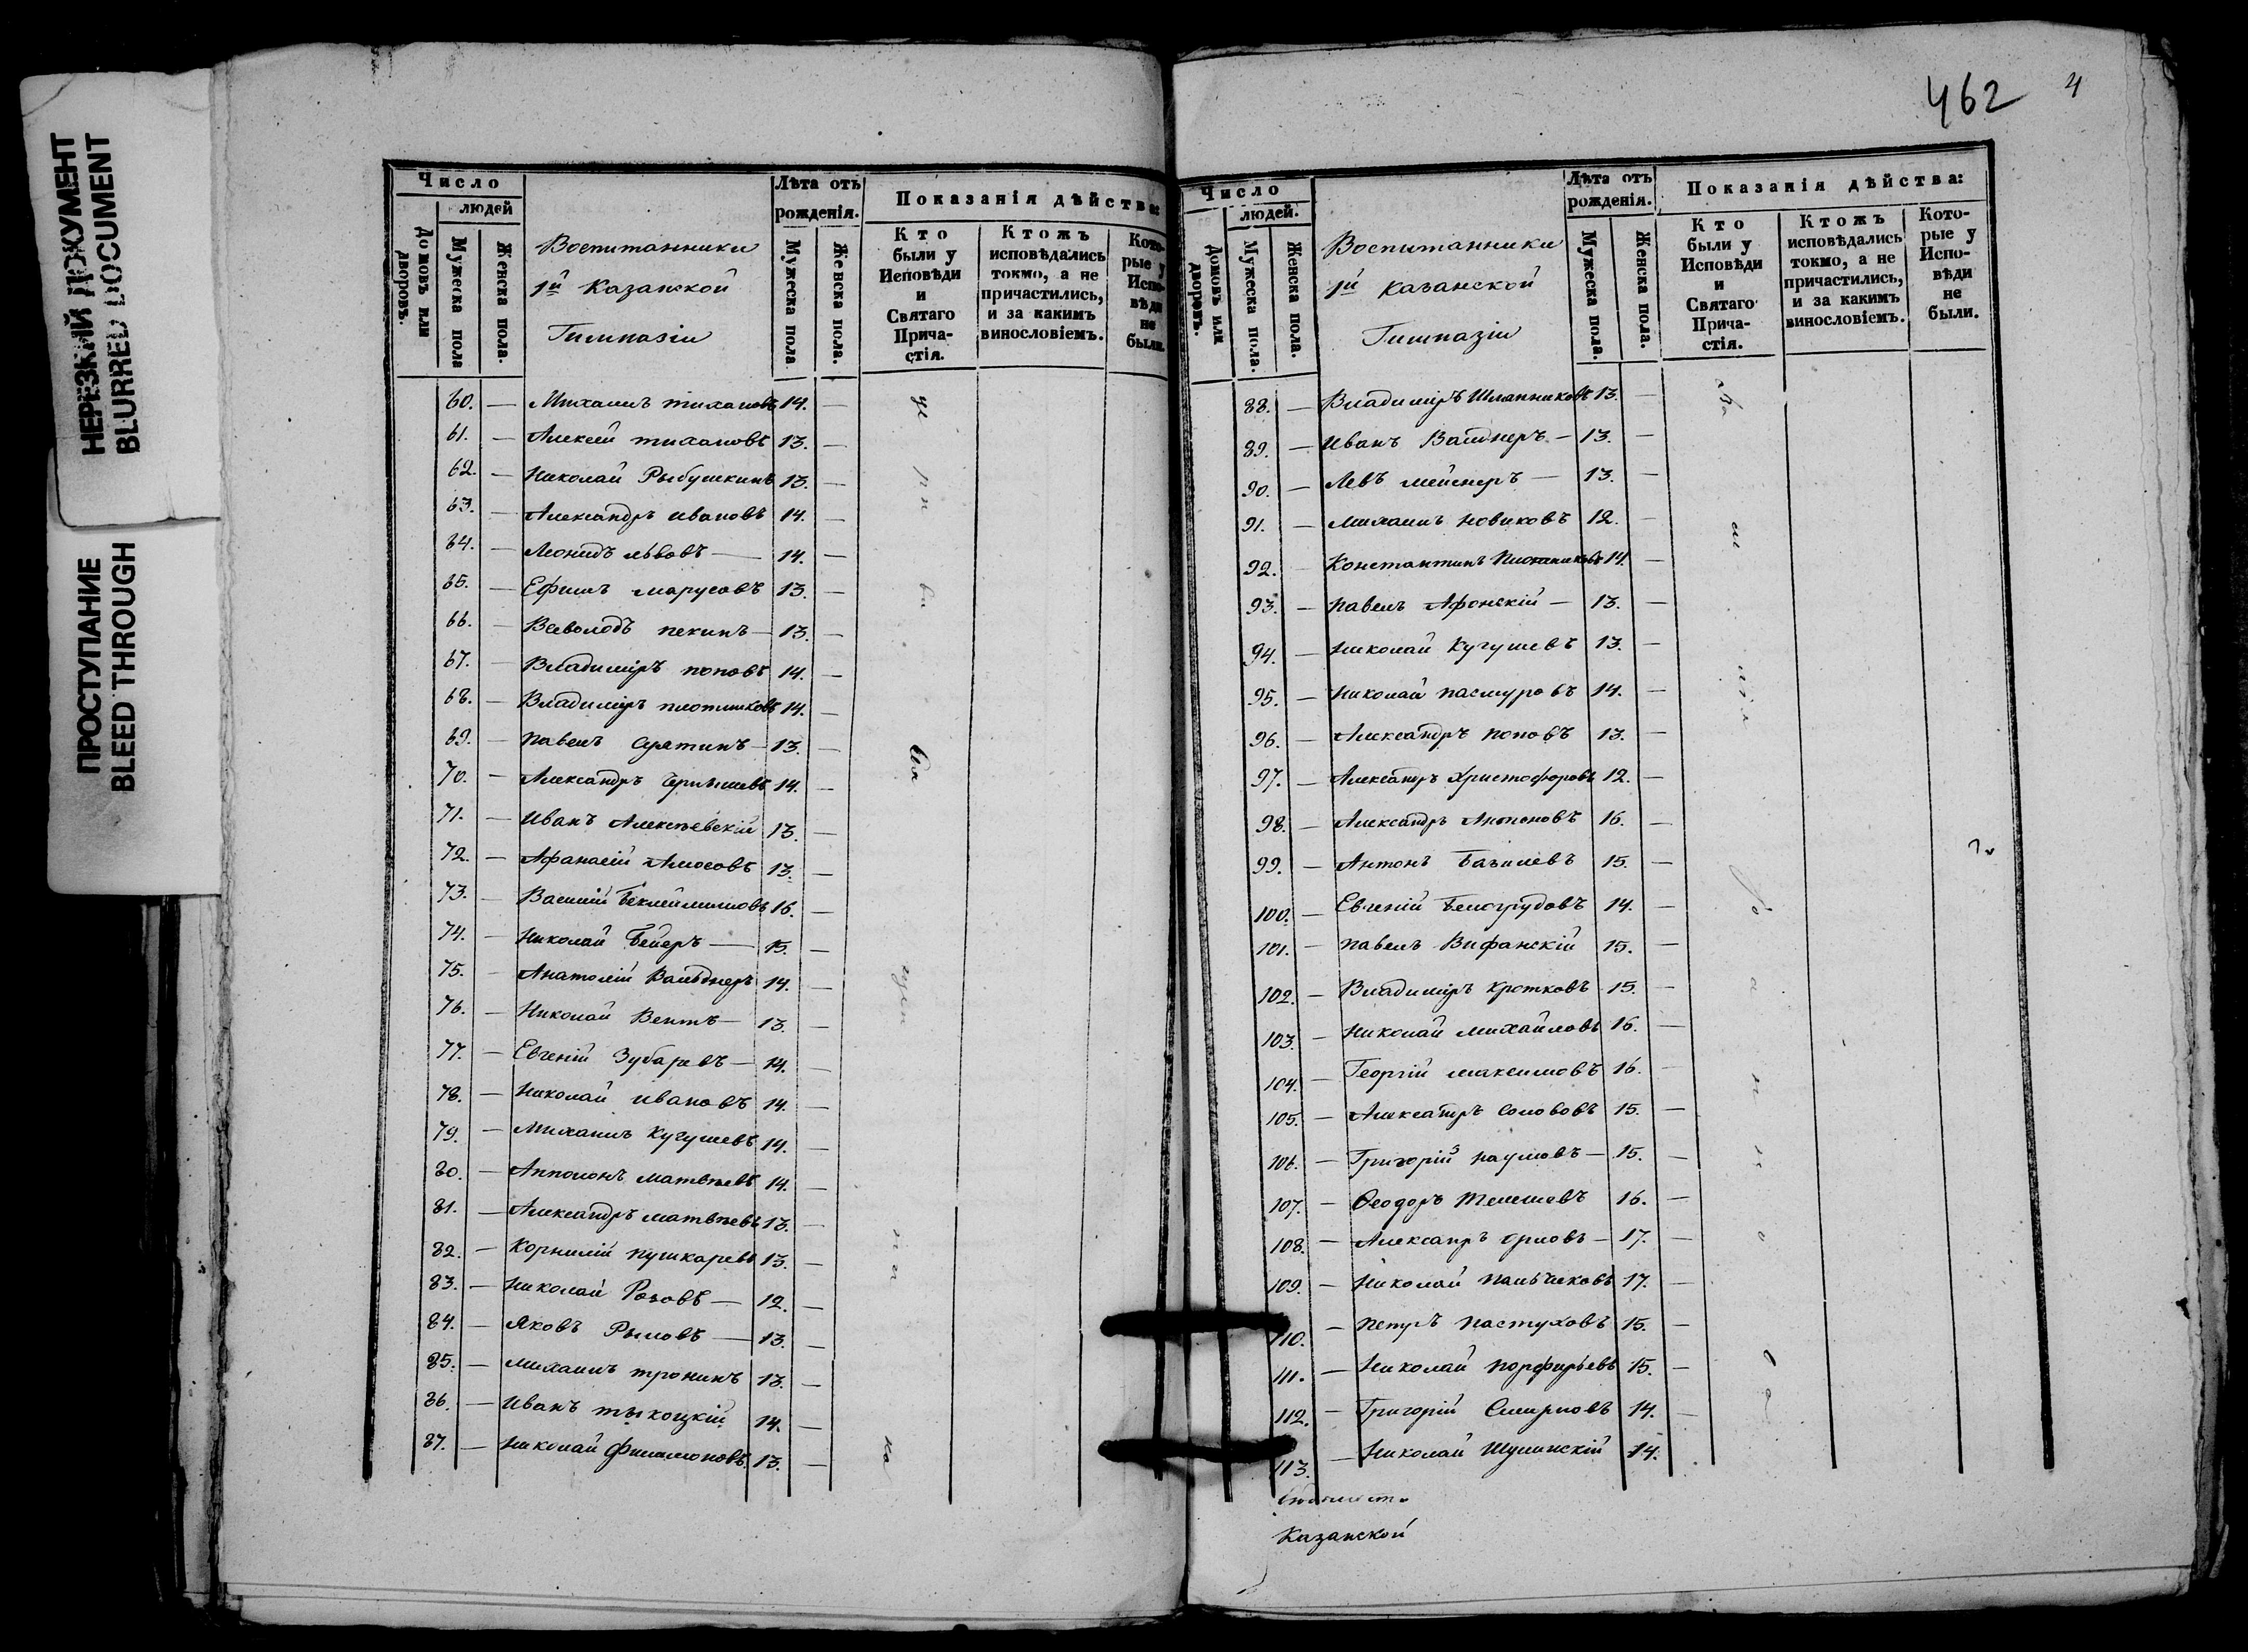 НЕРЕЗКИЙ ДОКУМЕНТ
BLURRED DOCUMENT
ПРОСТУПАНИЕ
BLEED THROUGH
Число
людей
Домовъ или дворовъ.
Мужеска пола
Женска пола.
Воспитанники
1й Казанской
Гимназіи
Лѣта отъ рожденія.
Мужеска пола
Женска пола.
Показанія дѣйства:
Кто были у Исповѣди и Святаго Прича-стія.
Ктожъ исповѣдались токмо, а не причастились, и за какимъ винословіемъ.
Кото-рые у Испо-вѣди не были.
60. — Михаилъ Тихановъ 14. —
61. — Алексѣй Тихановъ 13. —
62. — Николай Рыбушкинъ 13. —
63. — Александръ Ивановъ 14. —
64. — Леонидъ Львовъ — 14. —
65. — Ефимъ Марусовъ 13. —
66. — Всеволодъ Пекинъ — 13. —
67. — Владиміръ Поповъ 14. —
68. — Владиміръ Плотниковъ 14. —
69. — Павелъ Сунтинъ — 13. —
70. — Александръ Чернышевъ 14. —
71. — Иванъ Алексѣевскій 13. —
72. — Афанасій Амосовъ 13. —
73. — Василій Беклемишовъ 16. —
74. — Николай Бейеръ — 15. —
75. — Анатолій Вальднеръ 14. —
76. — Николай Вентъ — 13. —
77. — Евгеній Зубаревъ — 14. —
78. — Николай Ивановъ 14. —
79. — Михаилъ Кугушевъ 14. —
80. — Апполонъ Матвѣевъ 14. —
81. — Александръ Матвѣевъ 13. —
82. — Корнилій Пушкаревъ 13. —
83. — Николай Розовъ — 12. —
84. — Яковъ Рыловъ — 13. —
85. — Михаилъ Тронинъ 13. —
86. — Иванъ Тыкоцкій 14. —
87. — Николай Филимоновъ 13. —
462 4
Число
людей.
Домовъ или дворовъ.
Мужеска пола.
Женска пола.
Воспитанники
1й Казанской
Гимназіи
Лѣта отъ рожденія.
Мужеска пола.
Женска пола.
Показанія дѣйства:
Кто были у Исповѣди и Святаго Прича-стія.
Ктожъ исповѣдались токмо, а не причастились, и за какимъ винословіемъ.
Кото-рые у Испо-вѣди не были.
88. — Владиміръ Шлапниковъ 13. —
89. — Иванъ Вальднеръ — 13. —
90. — Левъ Мейснеръ — 13. —
91. — Михаилъ Новиковъ 12. —
92. — Константинъ Плотниковъ 14. —
93. — Павелъ Афонскій — 13. —
94. — Николай Кугушевъ 13. —
95. — Николай Пасмуровъ 14. —
96. — Александръ Поповъ 13. —
97. — Александръ Христофоровъ 12. —
98. — Александръ Антоновъ 16. —
99. — Антонъ Базилевъ 15. —
100. — Евгеній Белогрудовъ 14. —
101. — Павелъ Вифанскій 15. —
102. — Владиміръ Кротковъ 15. —
103. — Николай Михайловъ 16. —
104. — Георгій Максимовъ 16. —
105. — Александръ Солововъ 15. —
106. — Григорій Наумовъ — 15. —
107. — Ѳеодоръ Телешевъ 16. —
108. — Александръ Орловъ — 17. —
109. — Николай Пальчиковъ 17. —
110. — Петръ Пастуховъ 15. —
111. — Николай Порфирьевъ 15. —
112. — Григорій Смирновъ 14. —
113. — Николай Шулинскій 14.
Казанской